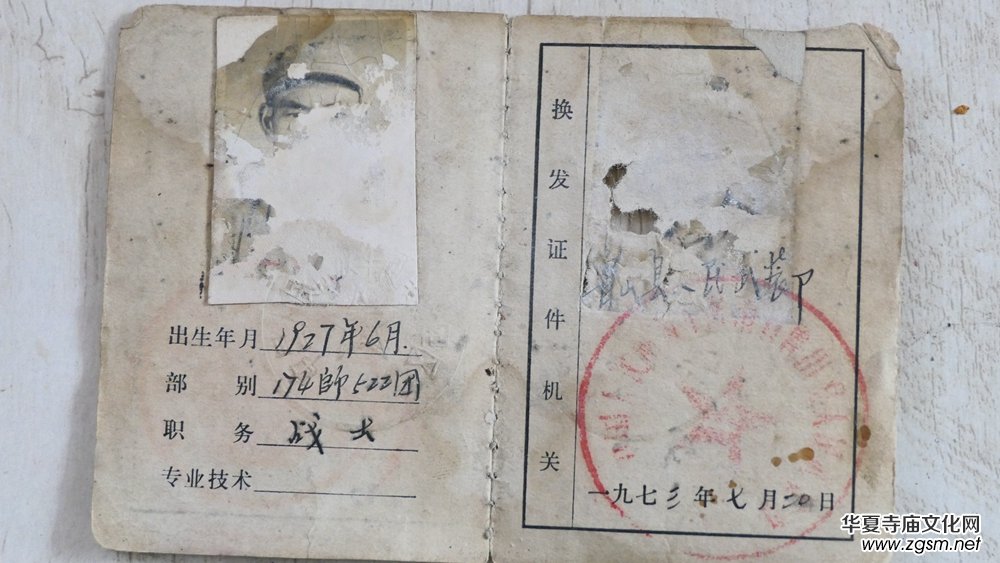 出生年月 1927年6月.
部别 174師522团
职务 战士
专业技术
换发证件机关
县人民武装部
一九七三年七月二〇日
华夏寺庙文化网
www.zgsm.net